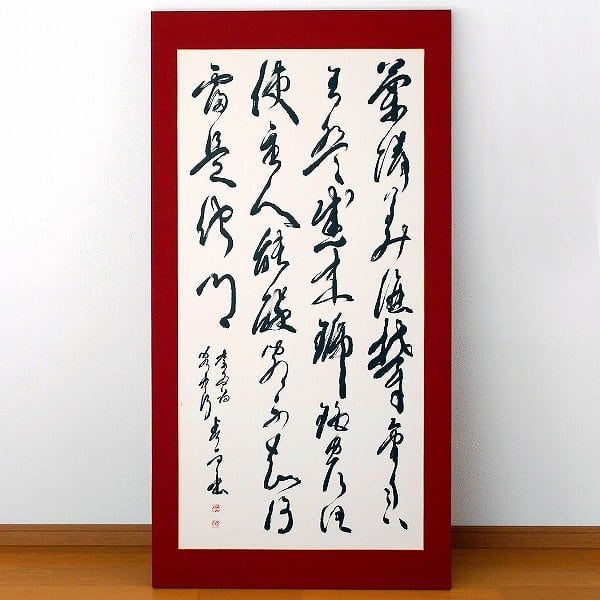 蘭陵美酒鬱金香
玉碗盛来琥珀光但
使主人能酔客不知何
處是他郷
李白詩
客中行